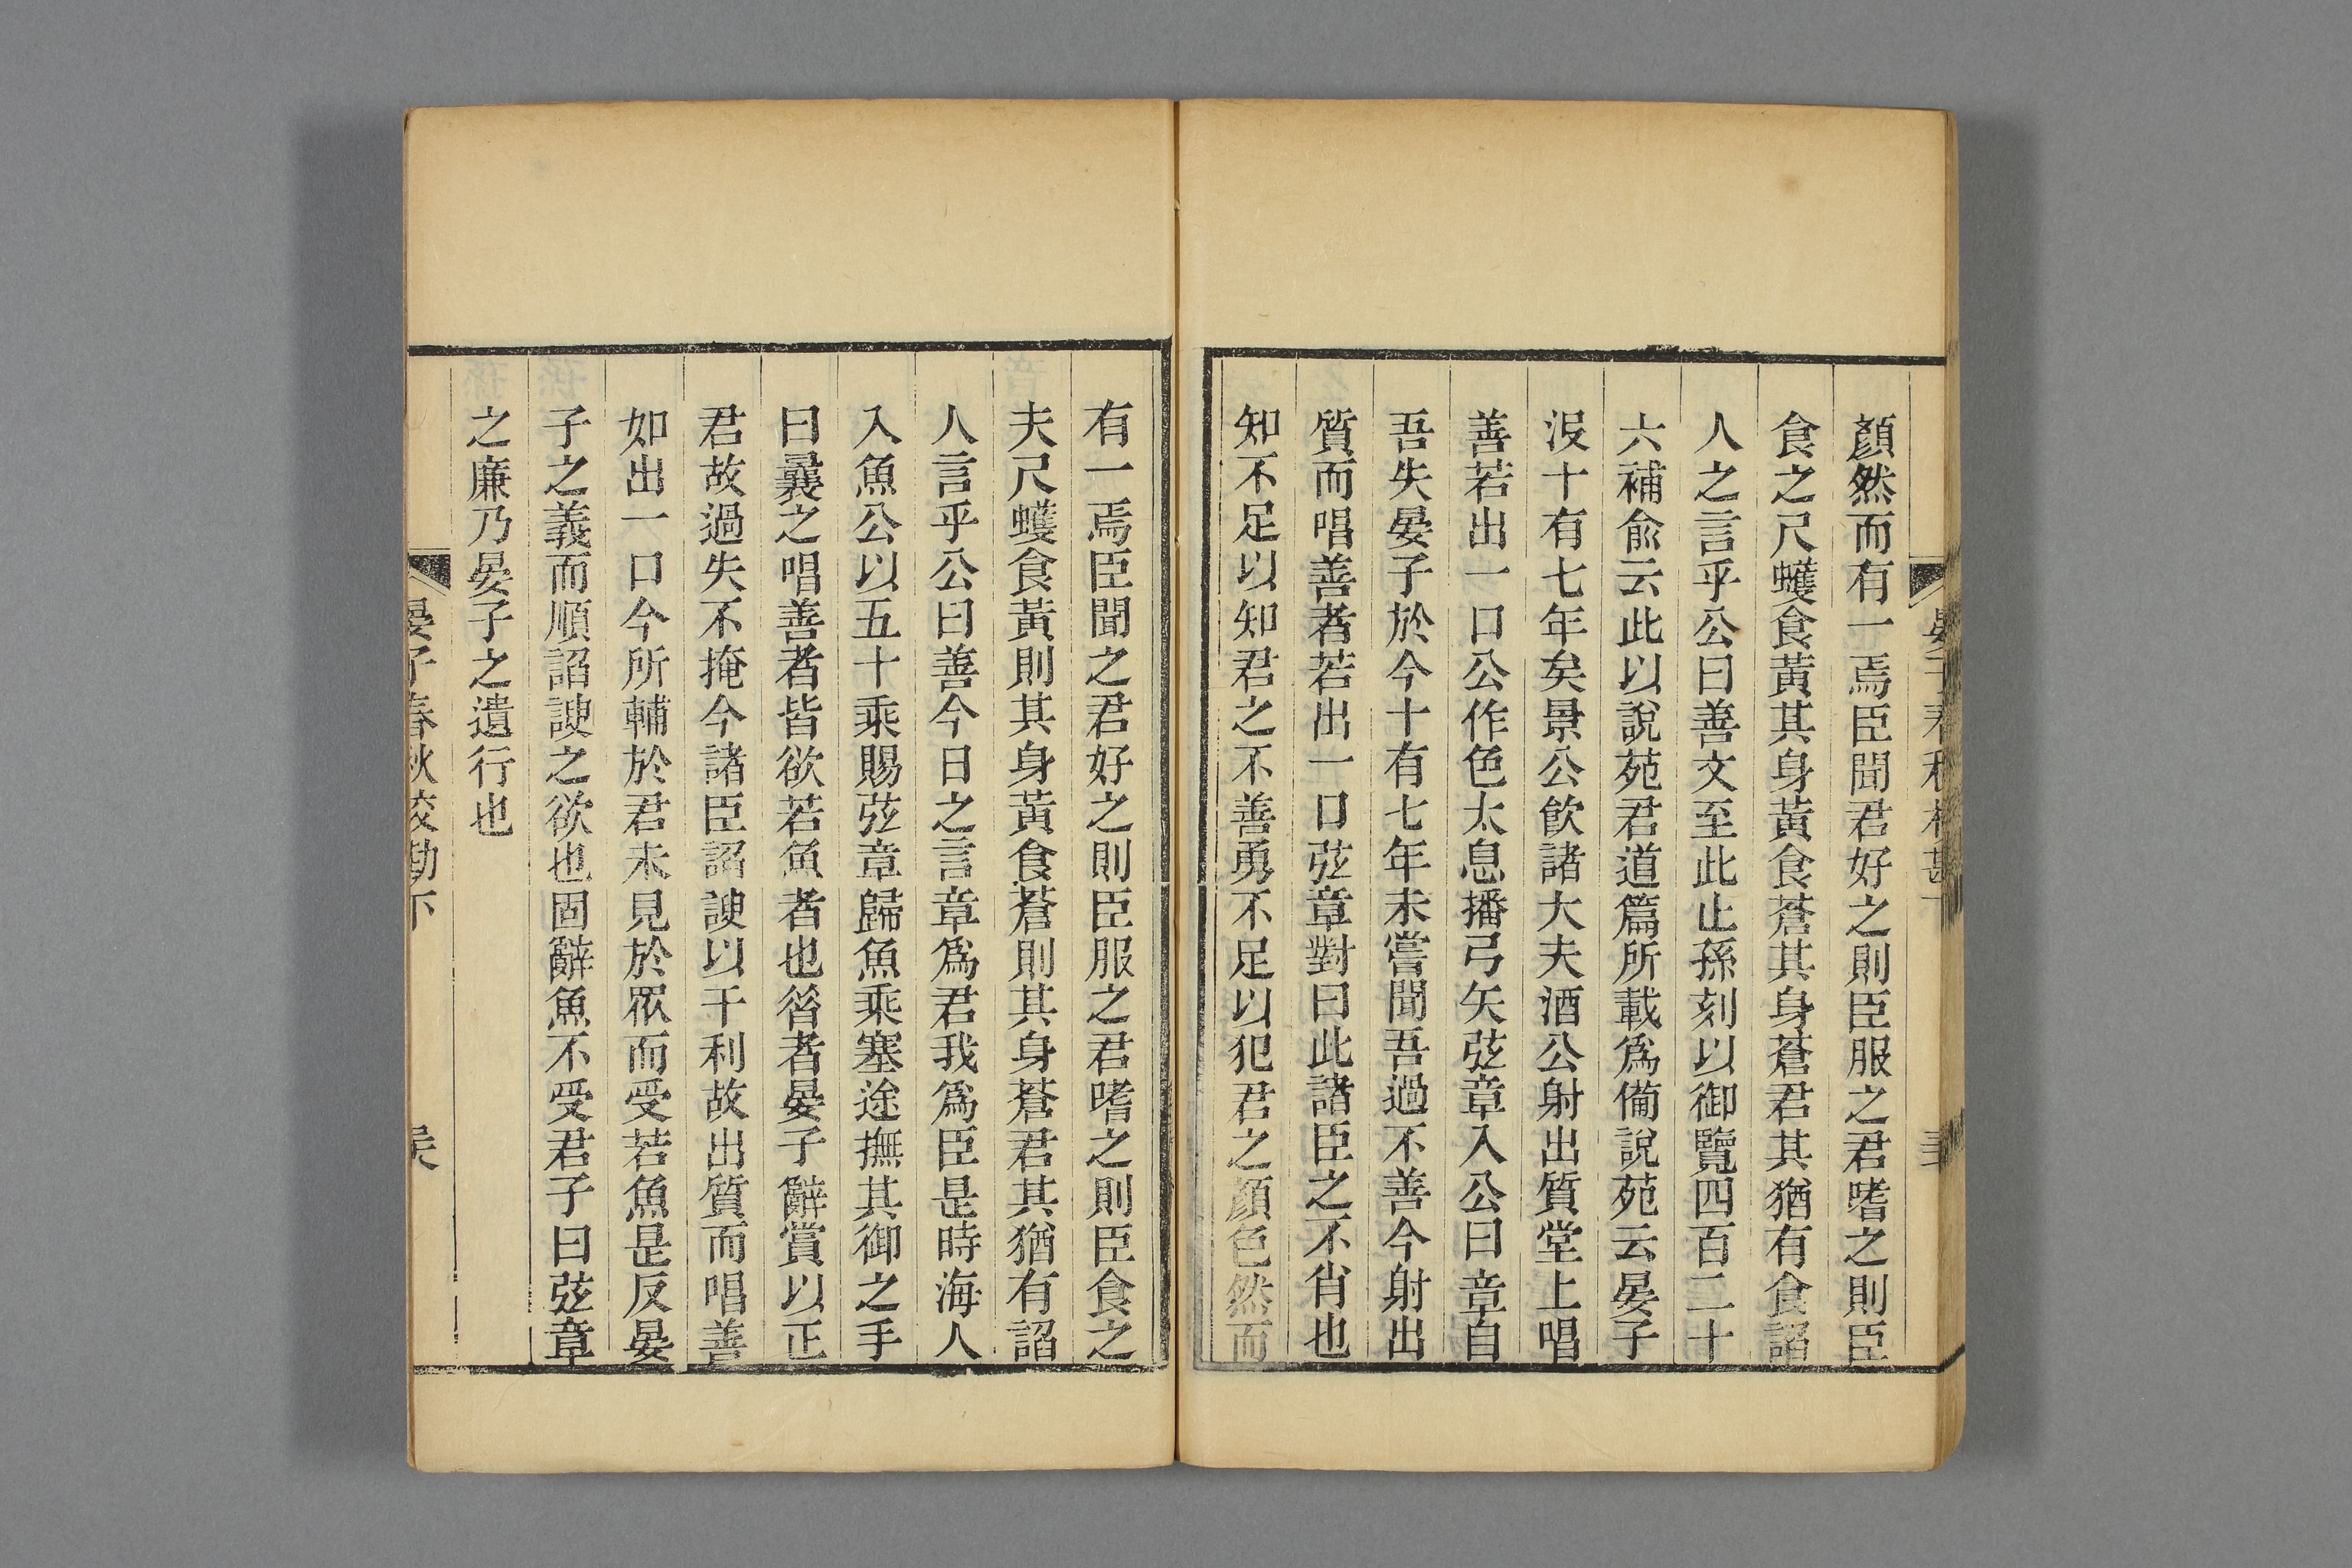 顏然而有一焉臣聞君好之則臣服之君嗜之則臣
食之尺蠖食黃其身黃食蒼其身蒼君其猶有食諂
人之言乎公曰善文至此止孫刻以御覽四百二十
六補俞云此以說苑君道篇所載爲僃說苑云晏子
沒十有七年矣景公飲諸大夫酒公射出質堂上唱
善若出一口公作色太息播弓矢弦章入公曰章自
吾失晏子於今十有七年未嘗聞吾過不善今射出
質而唱善者若出一口弦章對曰此諸臣之不肖也
知不足以知君之不善勇不足以犯君之顏色然而
有一焉臣聞之君好之則臣服之君嗜之則臣食之
夫尺蠖食黃則其身黃食蒼則其身蒼君其猶有諂
人言乎公曰善今日之言章爲君我爲臣是時海人
入魚公以五十乘賜弦章歸魚乘塞途撫其御之手
曰曩之唱善者皆欲若魚者也昝者晏子辭賞以正
君故過失不掩今諸臣諂諛以干利故出質而唱善
如出一口今所輔於君未見於眾而受若魚是反晏
子之義而順諂諛之欲也固辭魚不受君子曰弦章
之廉乃晏子之遺行也
晏子春秋校勘下